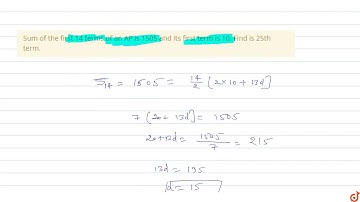 Sum of the first 14 terms of an AP is 1505 and its first term is 10. Find is 25th
term.
S₁₄ = 1505 = 14/2 [2×10+13d]
7 [20+13d] = 1505
20+13d = 1505/7 = 215
13d = 195
d = 15